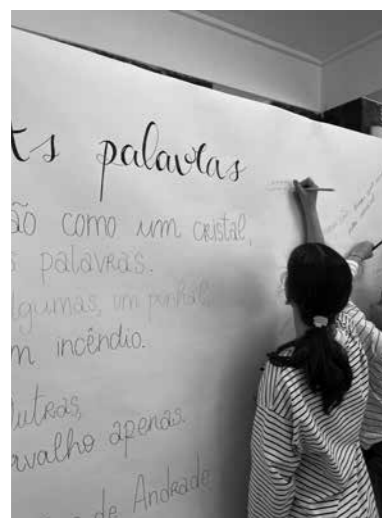 As palavras
ão como um cristal,
s palavras.
lgumas, um punhal,
m incêndio.
utras,
rvalho apenas.
de Andrade